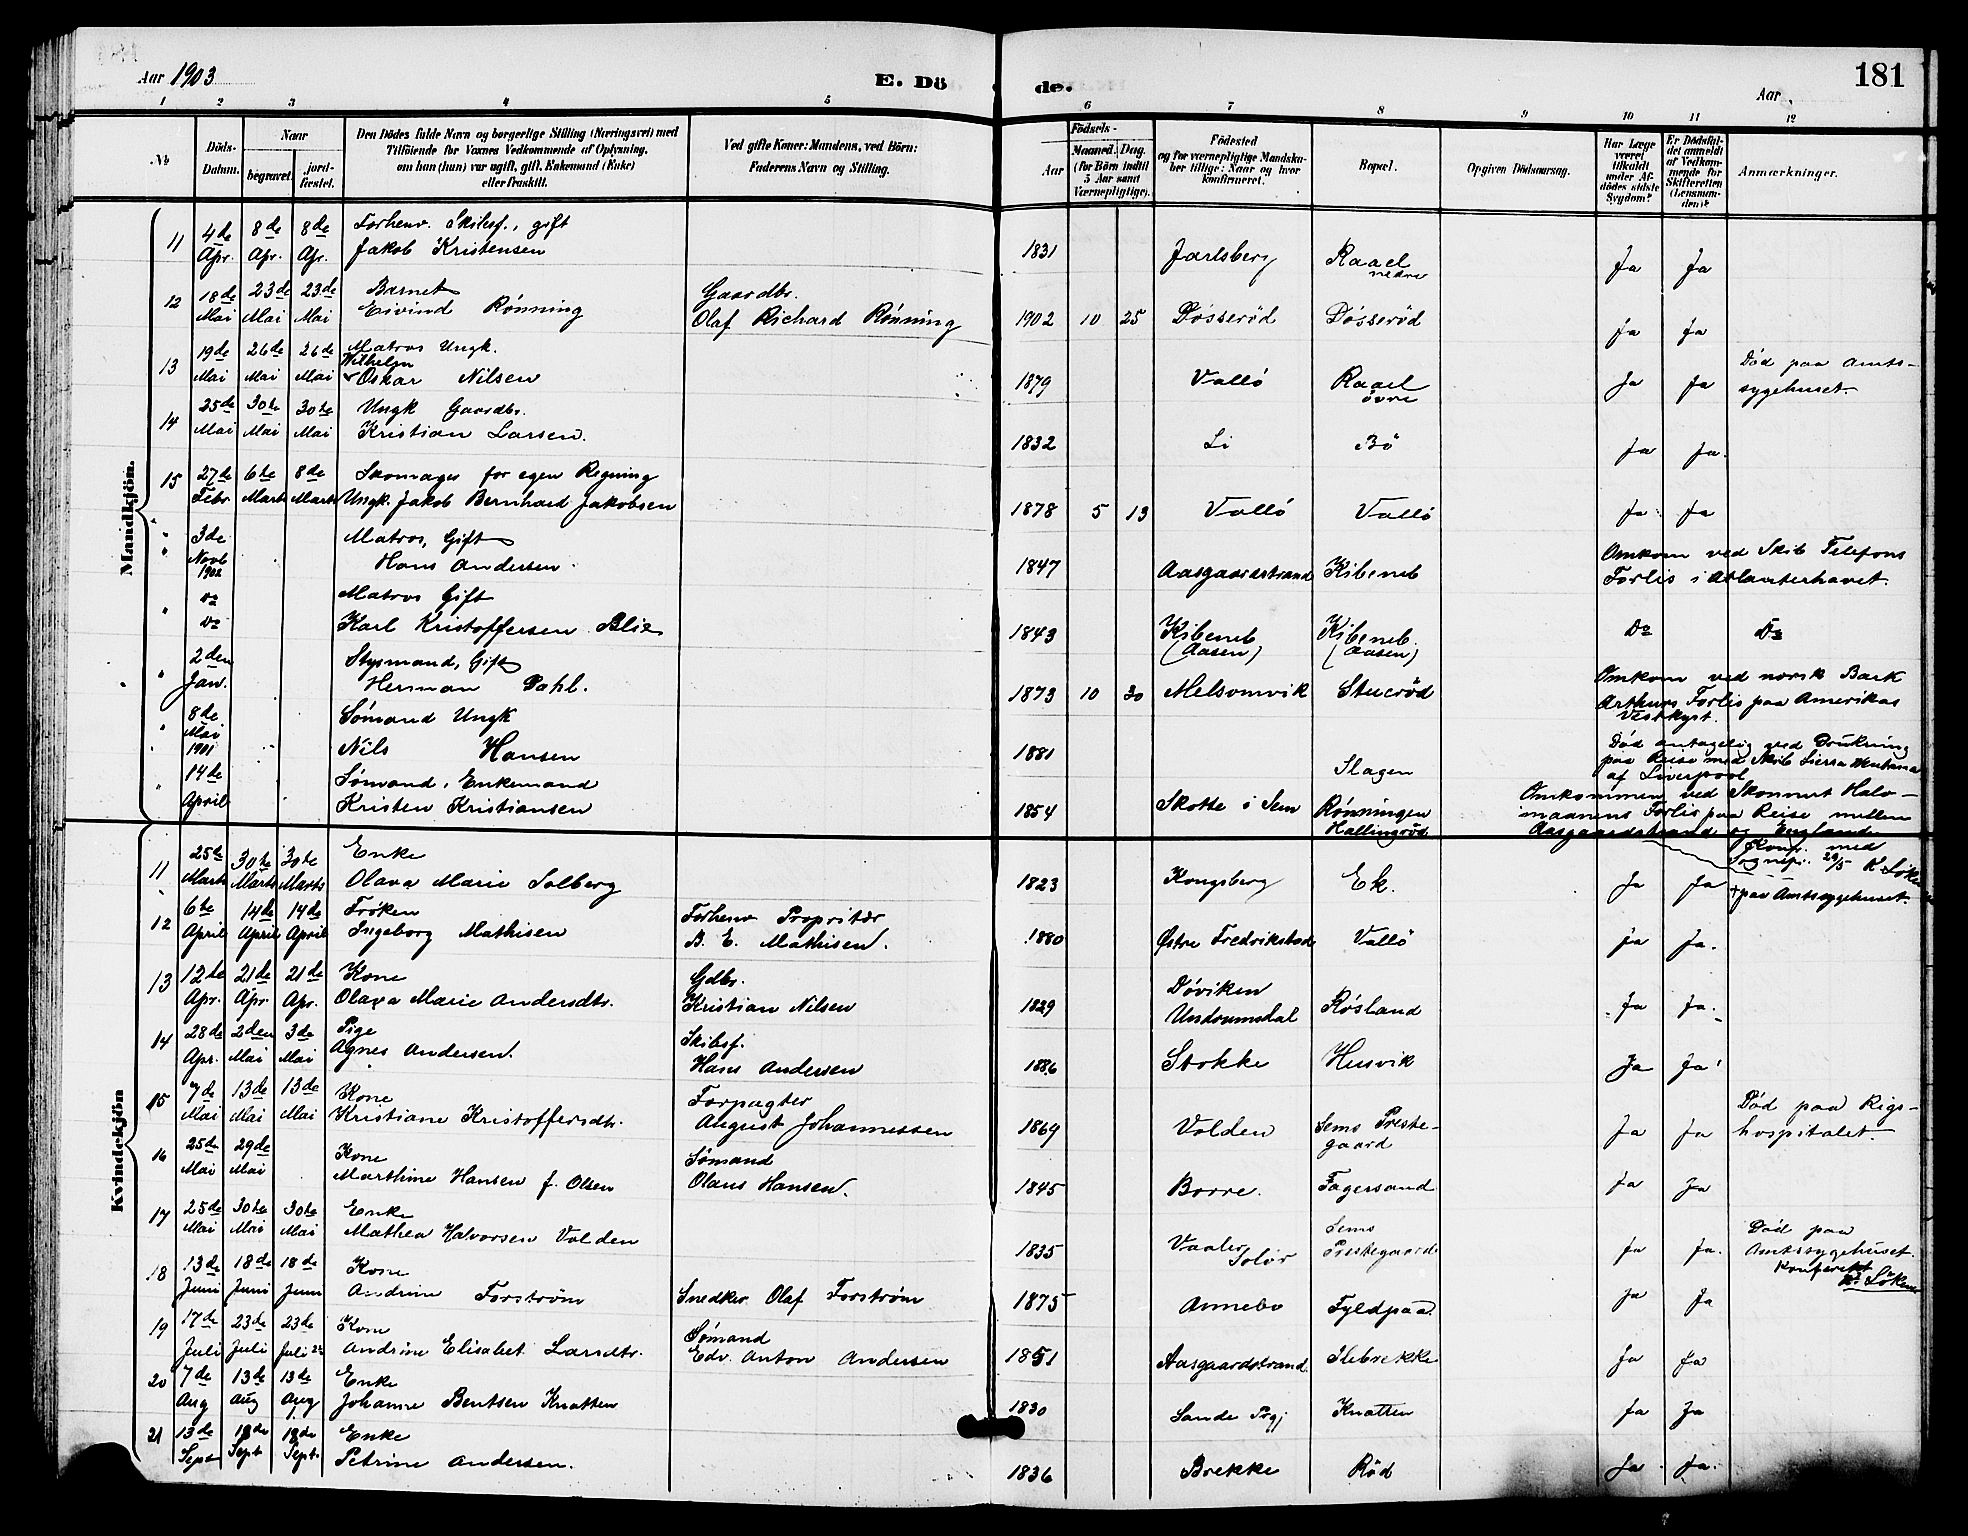 Aar 1903
E. Dö de.
Aar
181
1 2 3 4 5 6 7 8 9 10 11 12
No
Döds-Datum.
Naar
begravet.
jordfæstet.
Den Dödes fulde Navn og borgerlige Stilling (Næringsvei) med
Tilföiende for Voxnes Vedkommende af Oplysning,
om han (hun) var ugift, gift, Enkemand (Enke)
eller fraskilt.
Ved gifte Koner: Mandens, ved Börn:
Faderens Navn og Stilling.
Födsels-
Aar
Maaned. Dag.
(for Börn indtil
5 Aar samt
Værnepligtige).
Födested
og for værnepligtige Mandska-
ber tillige: Naar og hvor
konfirmeret.
Bopæl.
Opgiven Dödsaarsag.
Har Læge
været
tilkaldt
under Af-
dödes sidste
Sygdom?
Er Dödsfal-
det anmeldt
af Vedkom-
mende for
Skifteretten
(Lensman-
den)?
Anmærkninger.
Mandkjön.
11 4de Apr. 8de Apr. 8de Apr. Forhenv. Skibsf., gift
Jakob Kristensen 1831 Jarlsberg Raael nedre Ja Ja
12 18de Mai 23de Mai 23de Mai Barnet
Eivind Rønning Gaardbr.
Olaf Richard Rønning 1902 10 25 Døsserød Døsserød Ja Ja
13 19de Mai 26de Mai 26de Mai Matros Ungk.
Wilhelm
Oskar Nilsen 1879 Vallö Raael övre Ja Ja Död paa Amts-
sygehuset.
14 25de Mai 30te Mai 30te Mai Ungk Gaardbr.
Kristian Larsen. 1832 Li Bö Ja Ja.
15 27de Febr 6te Marts 8de Marts Skomager for egen Regning
Ungk. Jakob Bernhard Jakobsen 1878 5 13 Vallö Vallö Ja Ja
" 3de Novb 1902 Matros, Gift
Hans Andersen. 1847 Aasgaardstrand Kibeneb Omkom ved Skib Telefons
Forlis i Atlanterhavet.
" do do Matros Gift
Karl Kristoffersen Blix 1843 Kibeneb (Aasen) Kibeneb. (Aasen) Do Do
" 2den Jan. Styrmand, Gift
Herman Dahl. 1873 10 30 Melsomvik Stuerød Omkom ved norsk Bark
Arthurs Forlis paa Amerikas
Vestkyst.
" 8de Mai 1901 Sömand Ungk
Nils Hansen 1881 Slagen Död antagelig ved Drukning
paa Reise med Skib Sierra Ventana
af Liverpool
" 14de April Sömand, Enkemand
Kristen Kristiansen 1854 Skotte i Sem Rønningen
Hallingrød Omkommen ved Skonnert Halv-
maanens Forlis paa Reise mellem
Aasgaardstrand og England
Kvindekjön
11 25te Marts 30te Marts 30te Marts Enke
Olava Marie Solberg 1823 Kongsberg Ek. Ja Ja Konf. med
Sognepr. 29/5 K Söke
+ paa Amtssygehuset.
12 6te April 14de April 14de April Frøken
Ingeborg Mathisen Forhenv Propritær
B. E. Mathisen. 1880 Østre Fredrikstad Vallö Ja Ja.
13 12te Apr. 21de Apr 21de Apr. Kone
Olava Marie Andersdtr. Gdbr.
Kristian Nilsen 1829 Döviken
Undrumsdal Røsland Ja Ja.
14 28de Apr. 2den Mai 3de Mai Pige
Agnes Andersen. Skibsf.
Hans Andersen 1886 Stokke Husvik Ja Ja
15 7de Mai 13de Mai 13de Mai Kone
Kristiane Kristoffersdtr. Forpagter
August Johannessen 1869 Volden Sems Preste-
gaard Ja Ja Död paa Rigs-
hospitalet.
16 25de Mai 29de Mai Kone
Marthine Hansen f. Olsen Sömand
Olaus Hansen. 1845 Borre. Fagersand Ja Ja
17 25de Mai 30te Mai 30te Mai Enke
Mathea Halvorsen Volden 1835 Vaaler
Solör Sems
Prestegaard Ja Ja. Död paa
Amtssygehuset.
Konfereret
Söke
18 13de Juni 18de Juni 18de Juni Kone
Andrine Forström Snedker Olaf Forström 1875 Annebo Fyldpaa. Ja Ja
19 17de Juli 23de Juli 23de Juli Kone
Andrine Elisabet Larsdtr. Sömand
Edv. Anton Andersen 1851 Aasgaardstrand Ilebrekke Ja Ja
20 7de Aug 13de Aug 13de Aug Enke
Johanne Bentsen Knatten 1830 Sande Prgj Knatten Ja Ja
21 13de Sept 18de Sept 18de Sept. Enke
Petrine Andersen. 1836 Brekke Röd Ja Ja.